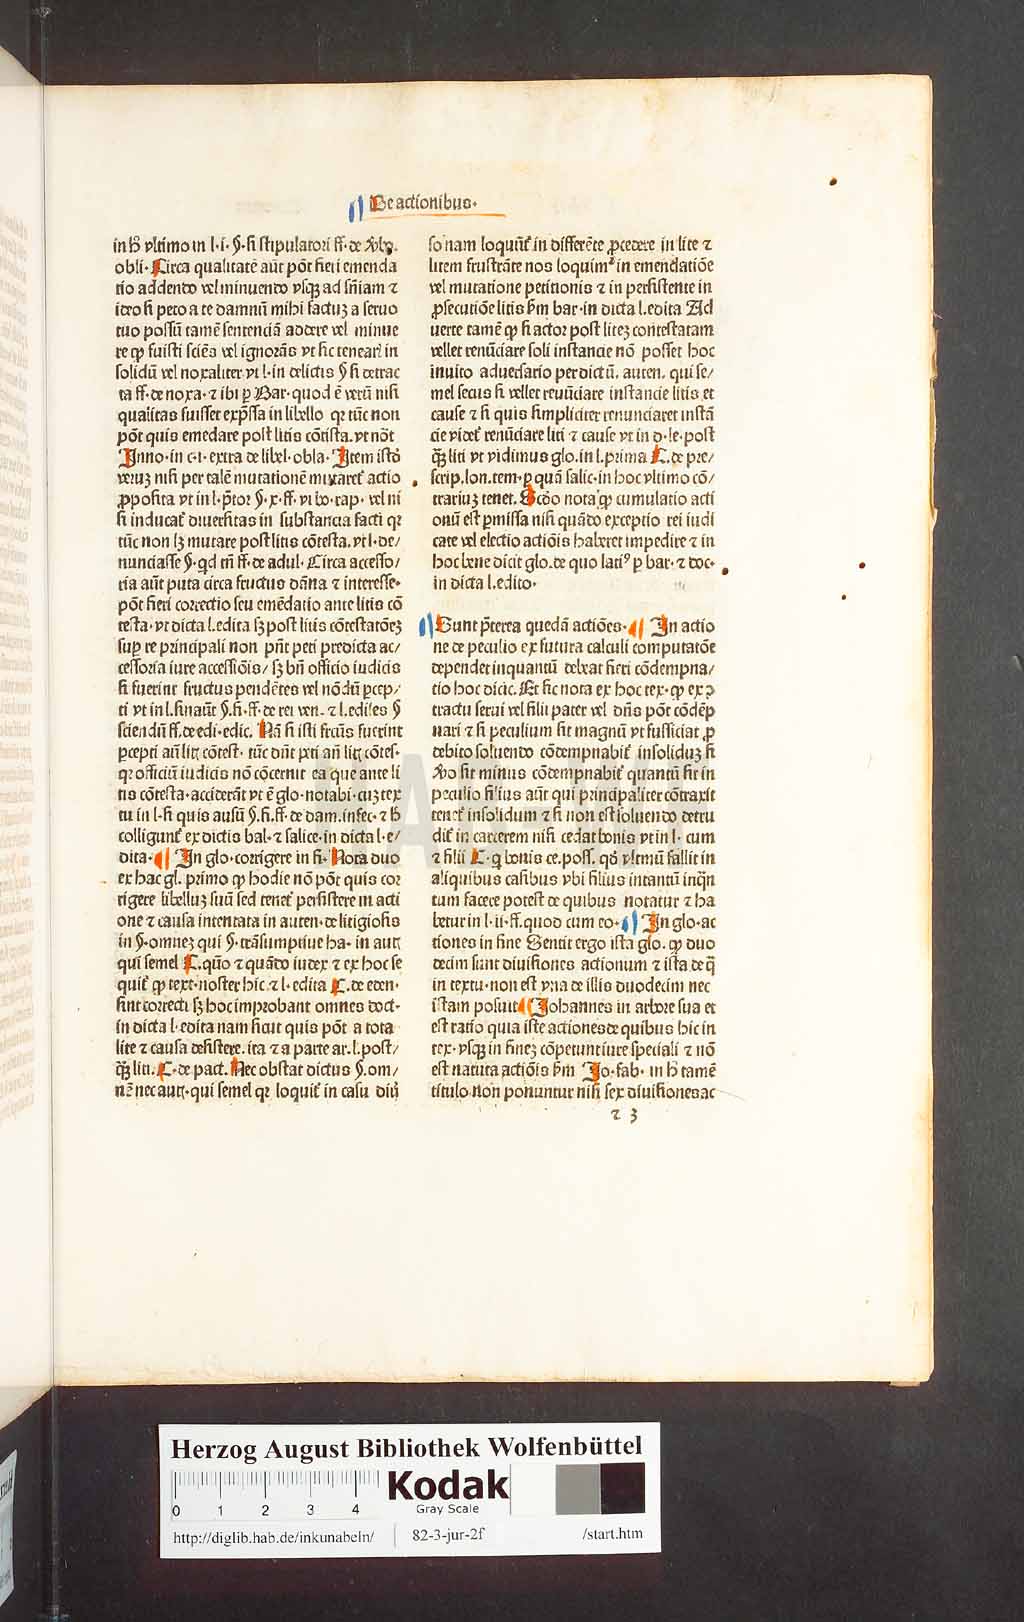 De actionibus.
in hͦ vltimo in l·i· §·si stipulatori ff·de ỽboꝵ.
obli· Circa qualitatē aūt pōt fieri emenda
tio addendo vel minuendo vsqꝫ ad sn̄iam ⁊
ideo si peto a te damnū mihi factuꝫ a seruo
tuo possū tamē sentenciā addere vel minue
re ꝙ fuisti sciēs vel ignorās vt sic tenearꝭ in
solidū vel noxaliter vt l·in delictis §·si detrac
ta ff·de noxa·⁊ ibi ꝑ Bar·quod ē verū nisi
qualitas fuisset exp̄ssa in libello qꝛ tūc non
pōt quis emēdare post litis cōtesta.vt nōt
Inno·in c·i·extra de libel·obla· Item isto
veruꝫ nisi per talē mutationē mutaretᷣ actio
ꝓposita vt in l·p̄tor §·x·ff·vi bo·rap·vel ni
si inducatᷣ diuersitas in substancia facti qꝛ
tūc non lꝫ mutare post litis cōtesta.vt l·de/
nunciasse §·qd tn̄ ff·de adul·Circa accesso/
ria aūt puta circa fructus dāna ⁊ interesse·
pōt fieri correctio seu emēdatio ante litis cō
testa·vt dicta l.edita sꝫ post litis cōtestatōeꝫ
suꝑ re principali non pn̄t peti predicta ac/
cessoria iure accessiōis/ sꝫ bn̄ officio iudicis
si fuerint fructus pendētes vel nōdū ꝑcep/
ti vt in l.si nauāt §·fi·ff·de rei ven·⁊ l.ediles §
sciendū ff.de edi·edic. Nā si isti fructus fuerint
ꝑcepti an̄ litꝭ cōtest· tūc dn̄t peti an̄ litꝭ cōtes·
qꝛ officiū iudicis nō cōcernit ea que ante li
tis cōtesta·acciderāt vt ē glo·notabi·cuꝫ tex
tu in l·si quis ausū §·fi·ff·de dam.infec·⁊ hͦ
colliguntᷣ ex dictis bal·⁊ salice·in dicta l·e/
dita· In glo·corrigere in fi· Nota duo
ex hac gl. primo ꝙ hodie nō pōt quis cor
rigere libelluꝫ suū sed tenetᷣ persistere in acti
one ⁊ causa intentata in auten·de litigiosis
in §·omneꝫ qui §·trāsumptiue ha·in autꝭ
qui semel C.quō ⁊ quādo iudex ⁊ ex hoc se
quitᷣ ꝙ text·noster hic ⁊ l·edita C.de eden·
sint correcti sꝫ hoc improbant omnes doct·
in dicta l·edita nam sicut quis pōt a tota
lite ⁊ causa desistere.ita ⁊ a parte ar.l.post/
q̄ꝫ liti. C.de pact. Nec obstat dictus §.om/
nē nec autꝭ·qui semel qꝛ loquitᷣ in casu diū
so nam loquūtᷣ in differēte ꝓcedere in lite ⁊
litem frustrāte nos loquimꝰ in emendatiōe
vel mutatione petitionis ⁊ in persistente in
ꝓsecutiōe litis ẜm bar·in dicta l.edita Ad
uerte tamē ꝙ si actor post liteꝫ contestatam
vellet renūciare soli instancie nō posset hoc
inuito aduersario per dictū. auten. qui se/
mel secus si vellet renūciare instancie litis et
cause ⁊ si quis simpliciter renunciaret instā
cie videtᷣ renūciare liti ⁊ cause vt in d·le·post
q̄ꝫ liti vt vidimus glo.in l.prima C.de pre/
scrip.lon.tem·p quā salic·in hoc vltimo cō/
trariuꝫ tenet. Scdo nota ꝙ cumulatio acti
onū est ꝑmissa nisi quādo exceptio rei iudi
cate vel electio actiōis haberet impedire ⁊ in
hoc bene dicit glo.de quo latiꝰ ꝑ bar·⁊ doc·
in dicta l.edita·
Sunt p̄terea quedā actiōes· In actio
ne de peculio ex futura calculi computatōe
dependet inquantū debeat fieri cōdempna/
tio hoc dicit. Et sic nota ex hoc tex·ꝙ ex ꝯ
tractu serui vel filii pater vel dn̄s pōt cōdēp
nari ⁊ si peculium sit magnū vt sufficiat ꝓ
debito soluendo cōdempnabitᷣ insoliduꝫ si
ỽo sit minus cōdempnabitᷣ quantū sit in
peculio filius aūt qui principaliter cōtraxit
tenetᷣ insolidum ⁊ si non est soluendo detru
ditᷣ in carcerem nisi cedat bonis vt in l·cum
⁊ filii C·q̄ bonis ce.poss. qd̄ vltimū fallit in
aliquibus casibus vbi filius intantū inqn̄
tum facere potest de quibus notatur ⁊ ha
betur in l·ii·ff.quod cum eo· In glo·ac
tiones in fine Sentit ergo ista glo. ꝙ duo
decim sunt diuisiones actionum ⁊ ista de q̄
in textu·non est vna de illis duodecim nec
istam posuit Johannes in arbore sua et
est ratio quia iste actiones de quibus hic in
tex·vsqꝫ in fineꝫ cōpetunt iure speciali ⁊ nō
est natura actiōis ẜm Jo·fab·in hͦ tamē
titulo non ponuntur nisi sex diuisiones ac
⁊ 3
Herzog August Bibliothek Wolfenbüttel
0 1 2 3 4
Kodak
Gray Scale
http://diglib.hab.de/inkunabeln/ 82-3-jur-2f /start.htm